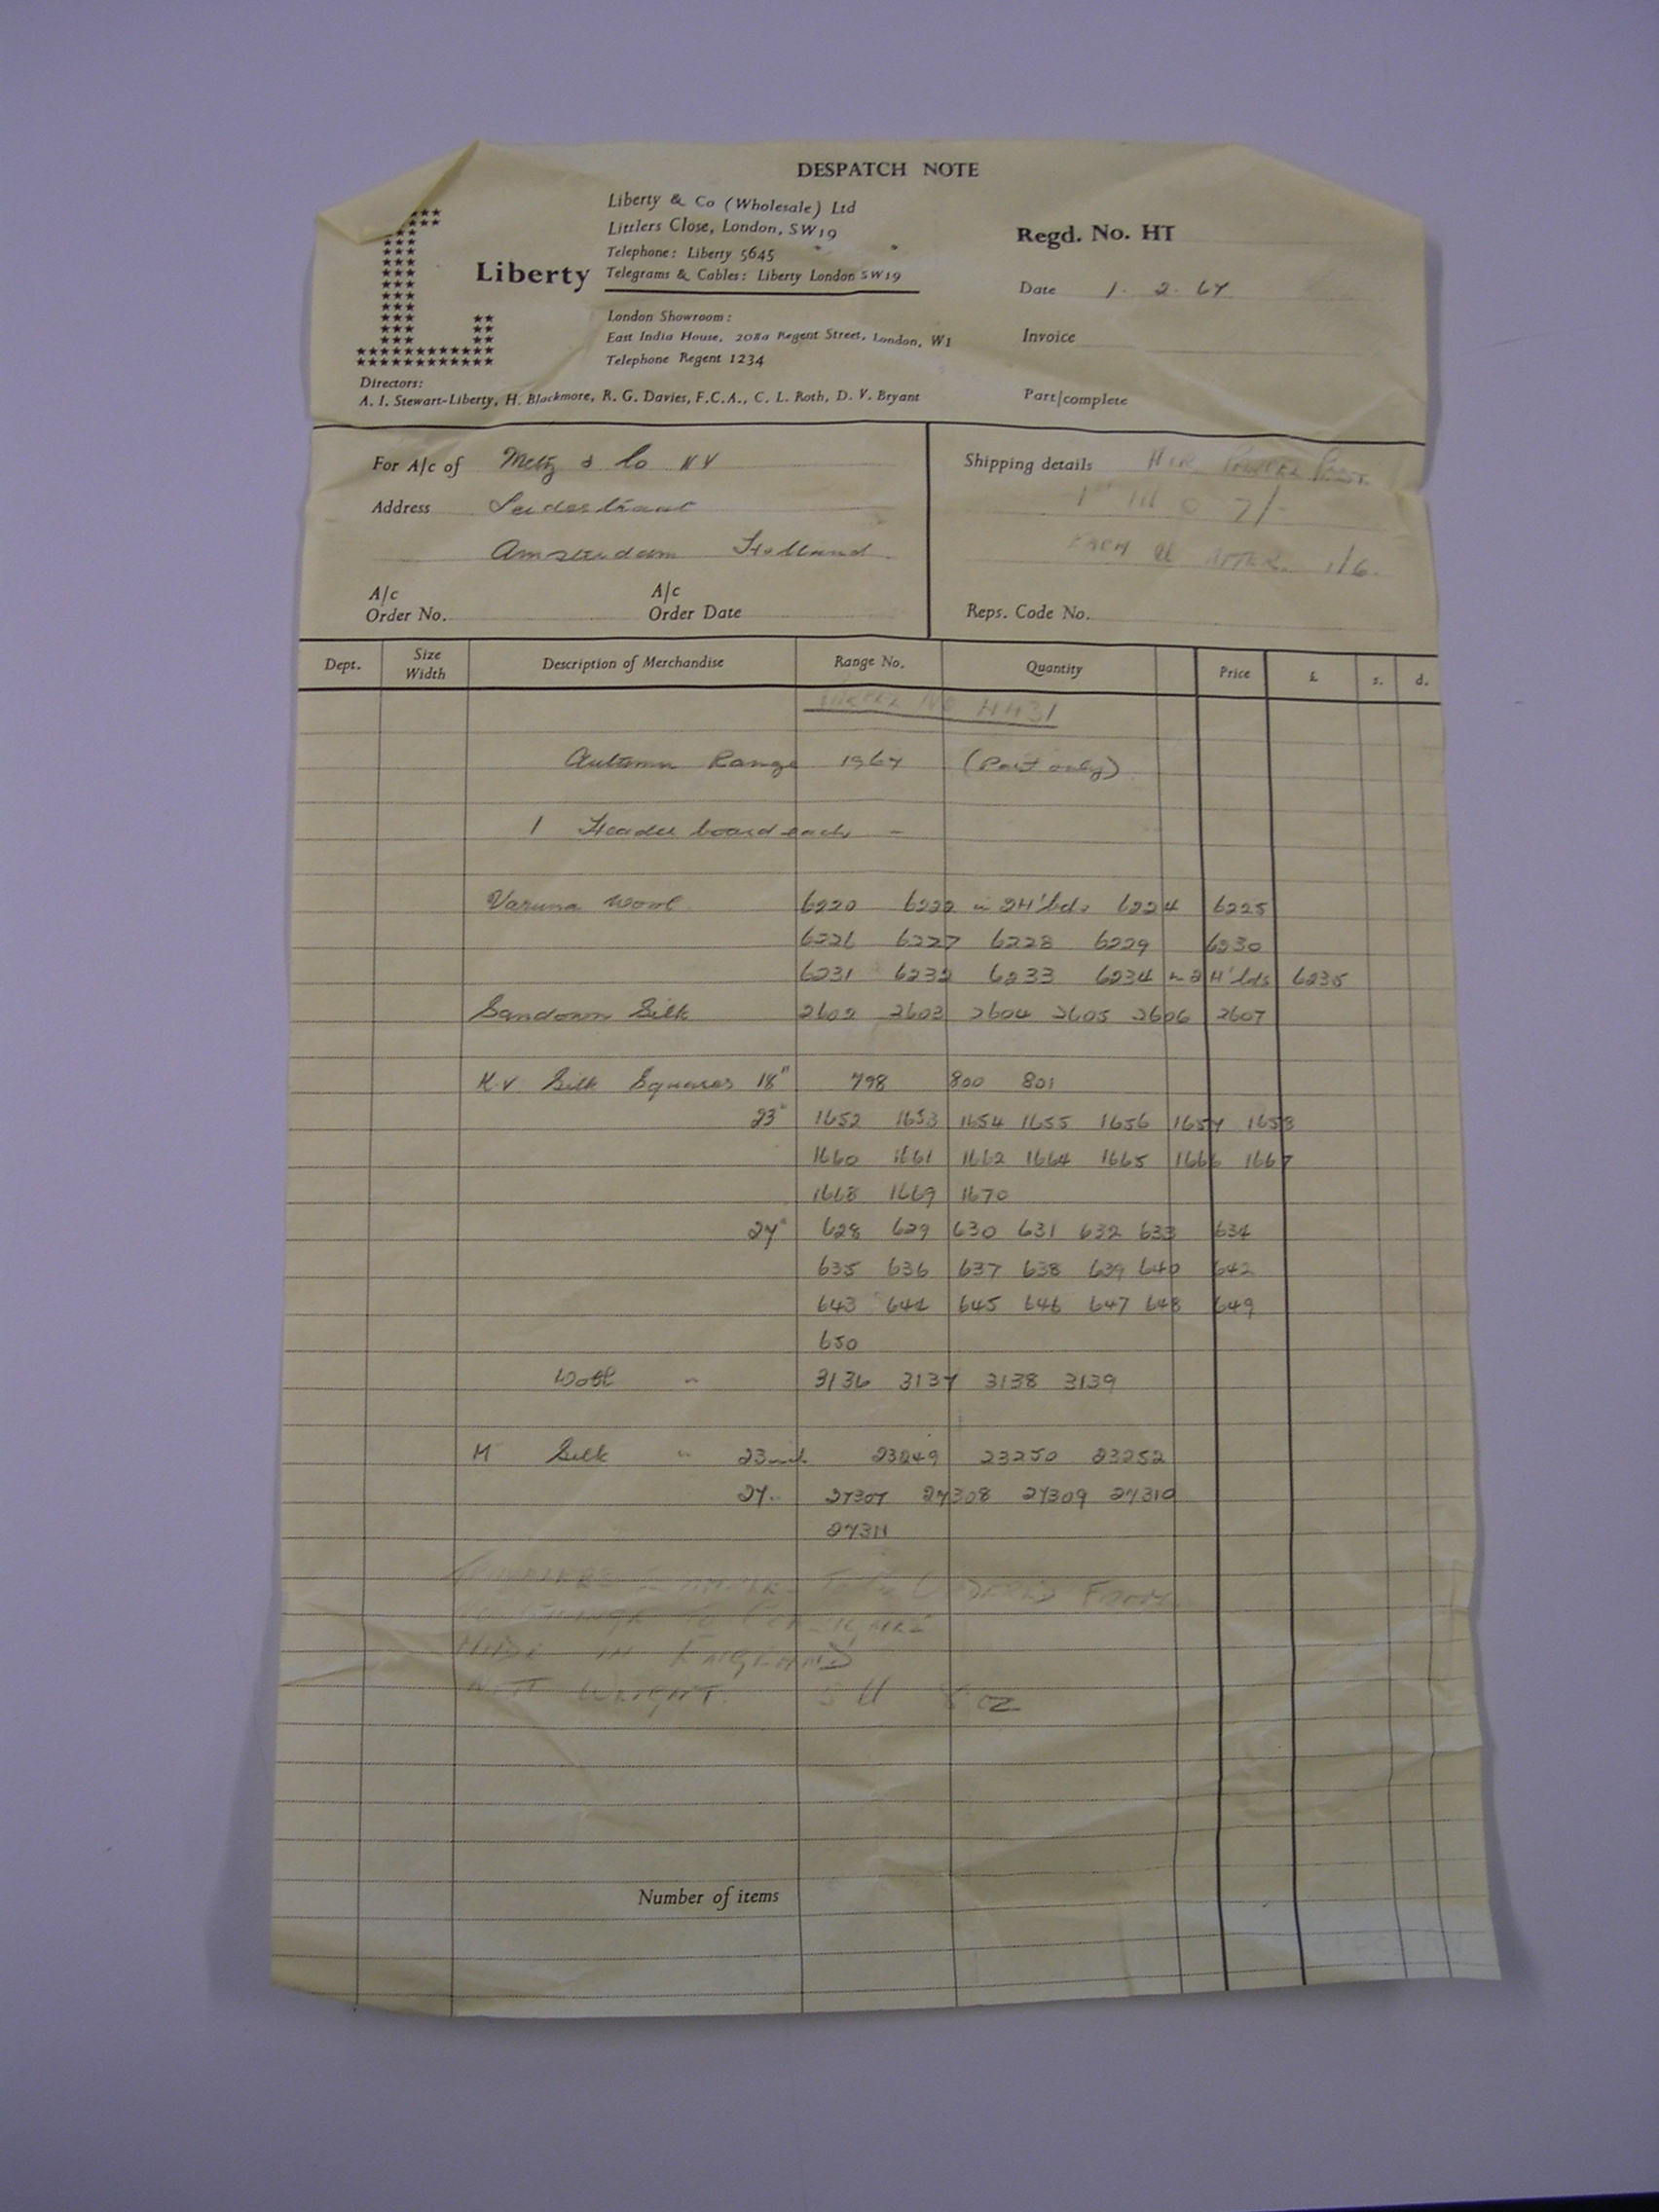 DESPATCH NOTE
Liberty
Liberty & Co (Wholesale) Ltd
Littlers Close, London, SW19
Telephone: Liberty 5645
Telegrams & Cables: Liberty London SW19
London Showroom:
East India House, 208a Regent Street, London, W1
Telephone Regent 1234
Directors:
A. I. Stewart-Liberty, H. Blackmore, R. G. Davies, F.C.A., C. L. Roth, D. V. Bryant
Regd. No. HT
Date 1. 2. 67
Invoice
Part/complete
For A/c of Metz & Co NV
Address Leidestraat
Amsterdam Holland
A/c Order No.
A/c Order Date
Shipping details AIR PARCEL POST
1st 7/-
EACH AFTER 1/6.
Reps. Code No.
Dept. Size Width Description of Merchandise Range No. Quantity Price £ s. d.
PARCEL NO 4431
Autumn Range 1967 (Part only)
1 Header board each -
Varuna Wool 6220 6222 in 2 H'bds 6224 6225
6226 6227 6228 6229 6230
6231 6232 6233 6234 in 2 H'bds 6235
Sandown Silk 2602 2603 2604 2605 2606 2607
H.V Silk Squares 18" 798 800 801
23" 1652 1653 1654 1655 1656 1657 1658
1660 1661 1662 1664 1665 1666 1667
1668 1669 1670
27" 628 629 630 631 632 633 634
635 636 637 638 639 640 642
643 644 645 646 647 648 649
650
Wool " 3136 3137 3138 3139
M Silk " 23 23249 23250 23252
27" 27307 27308 27309 27310
27311
FROM
TO CONSIGNEE
MADE IN ENGLAND
NETT WEIGHT. 5 8 oz
Number of items